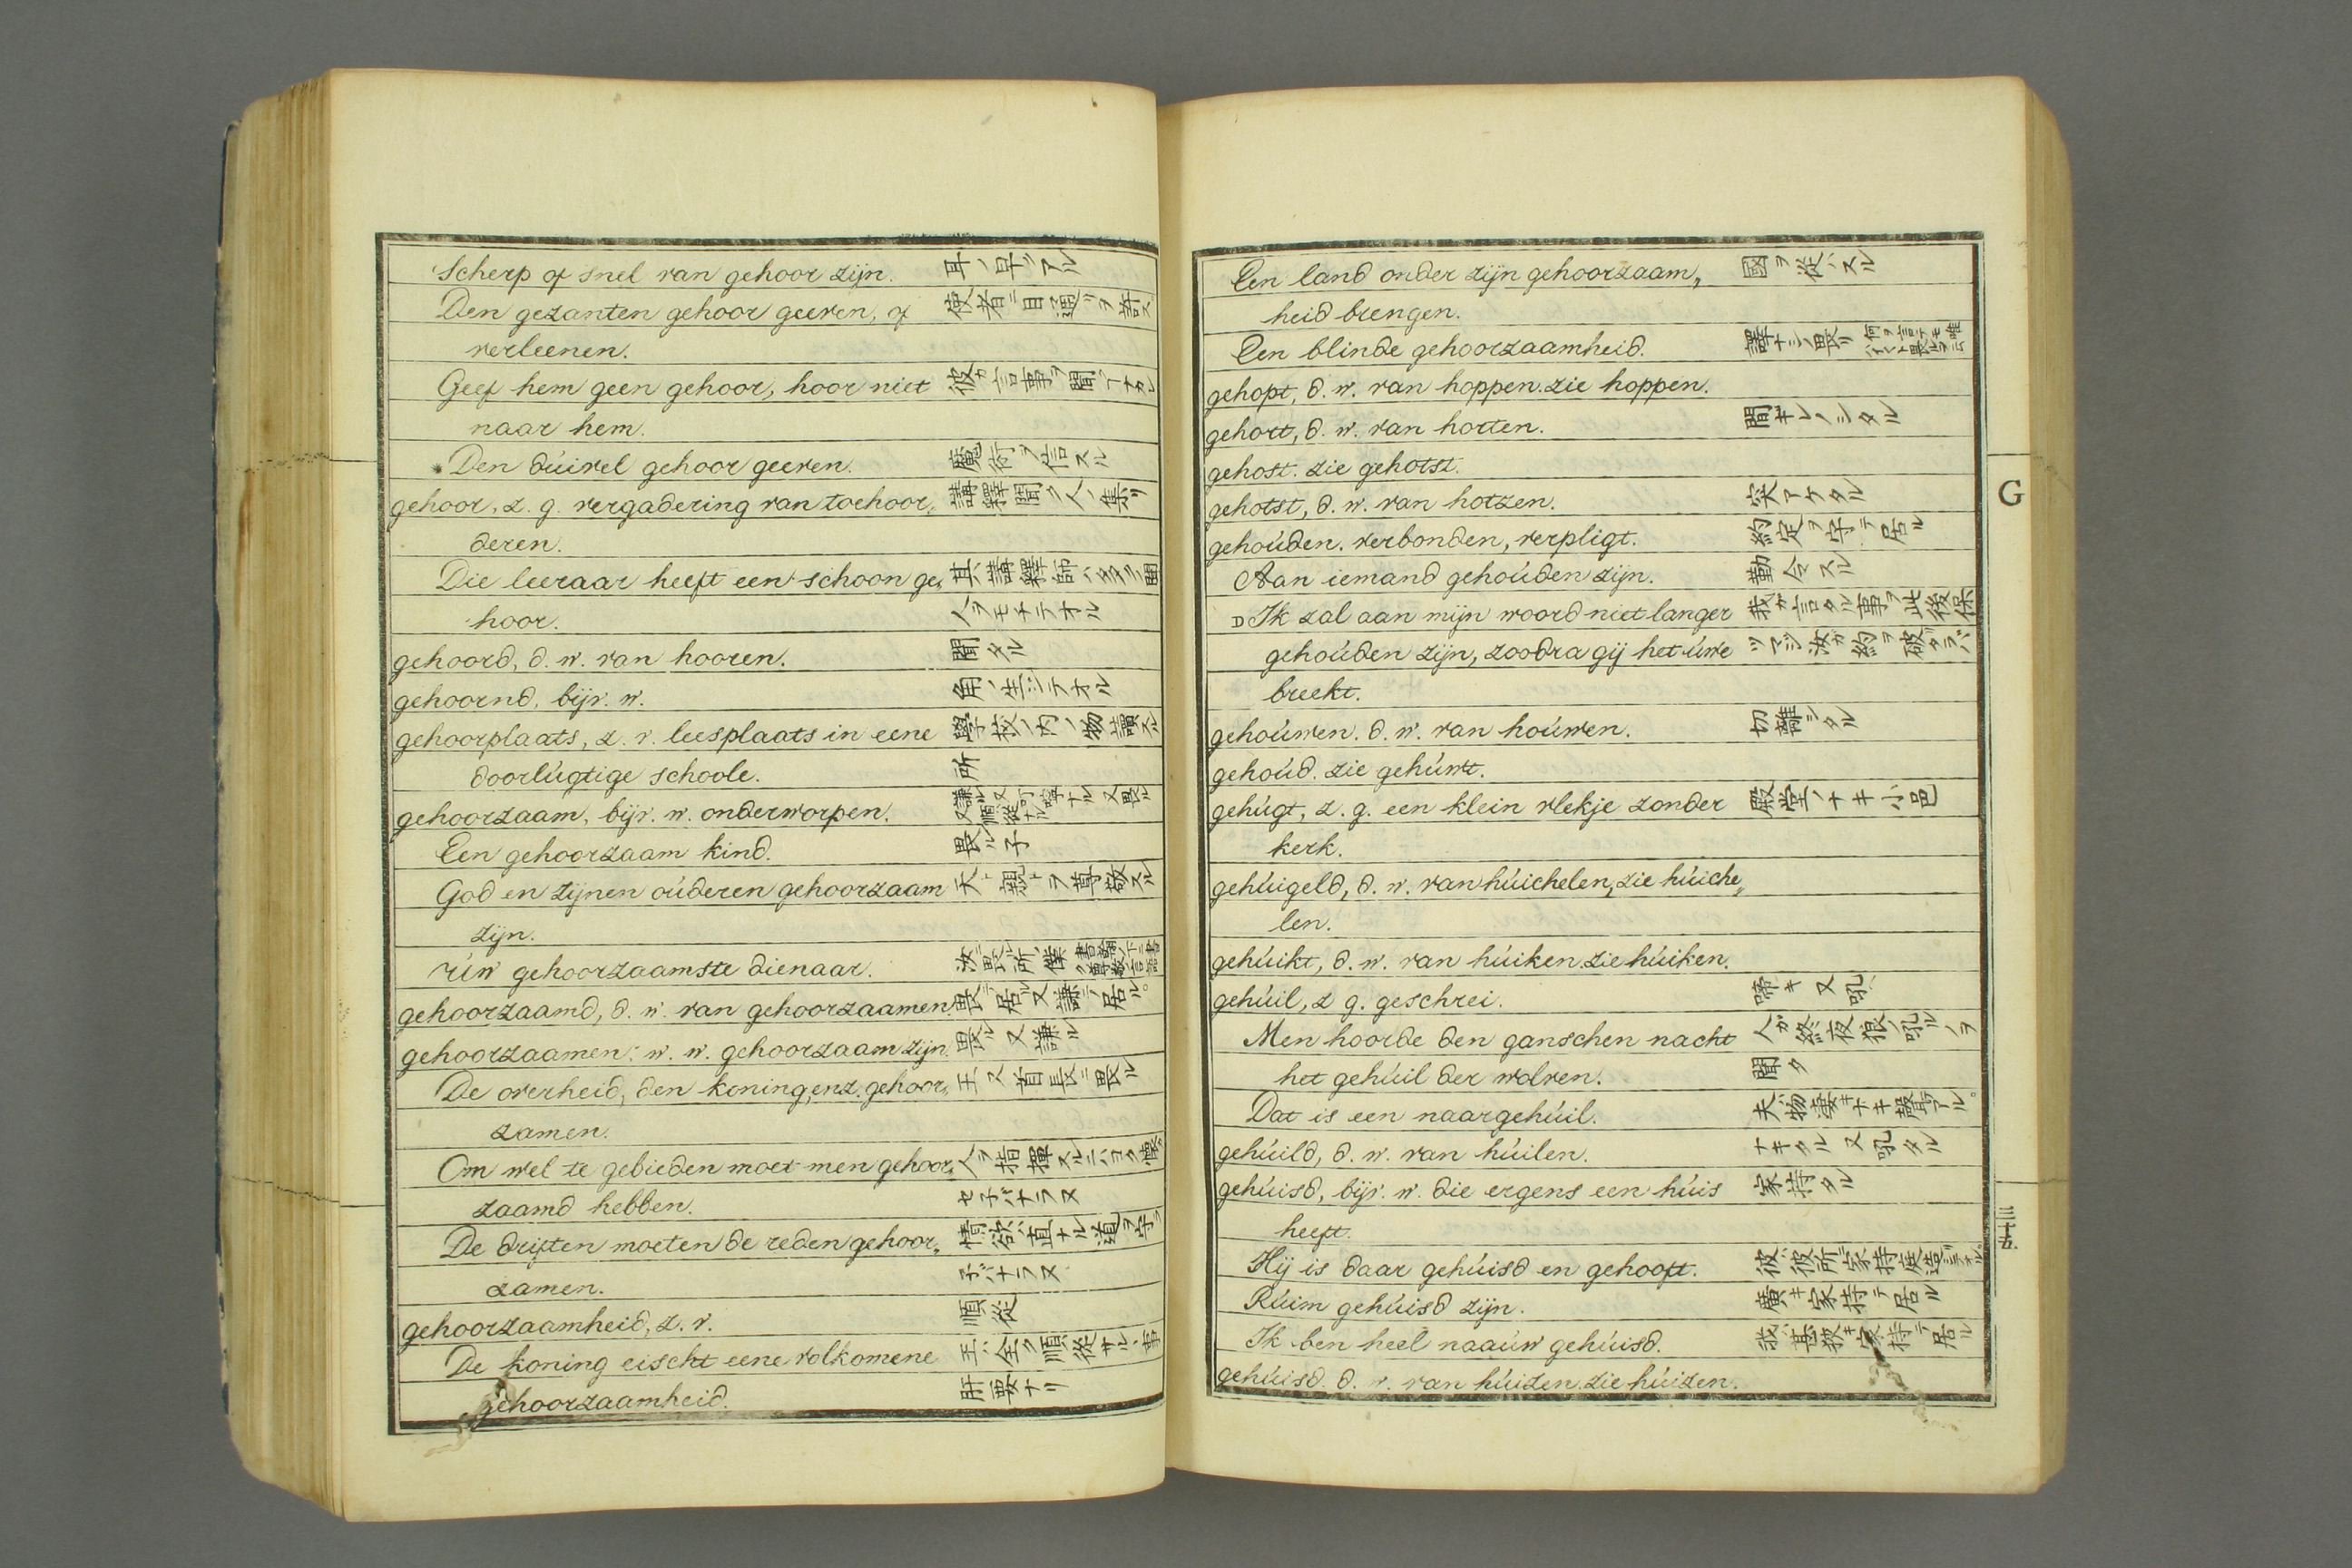 Scherp of snel van gehoor zijn. 耳ノ早クアル
Den gezanten gehoor geeven, of 使者ニ目通リヲ許ス
verleenen.
Geef hem geen gehoor, hoor niet 彼カ言事ヲ聞クナカレ
naar hem.
Den dúivel gehoor geeven. 魔術ヲ信スル
gehoor, z. g. vergadering van toehoor„ 講釋聞ク人ノ集リ
deren.
Die leeraar heeft een schoon ge„ 其講釋師ハ多クノ聞
hoor. 人ヲモチテオル
gehoord, d. w. van hooren. 聞タル
gehoornd, bijv. w. 角ノ生シテオル
gehoorplaats, z. v. leesplaats in eene 學校ノ内ノ物讀スル
doorlúgtige schoole. 所
gehoorzaam, bijv. w. onderworpen.
Een gehoorzaam kind. 畏ル子
God en zijnen oúderen gehoorzaam 天ト親トヲ尊敬スル
zijn.
úw gehoorzaamste dienaar. 汝ニ畏ル所ノ僕
gehoorzaamd, d. w. van gehoorzaamen 畏テ居ル又謙テ居ル。
gehoorzaamen. w. w. gehoorzaam zijn. 畏ル又謙ル
De overheid, den koning, enz. gehoor„ 王又首長ニ畏ル
zamen.
Om wel te gebieden moet men gehoor„ 人ヲ指揮スルニハヨク懷
zaamd hebben. セ子バナラヌ
De driften moeten de reden gehoor„ 情欲ハ直ナル道ヲ守ラ
zamen. 子バナラヌ
gehoorzaamheid, z. v. 順從
De koning eischt eene volkomene 王ハ全ク順從サル丶事
gehoorzaamheid. 肝要ナリ
Een land onder zijn gehoorzaam„ 國ヲ從ハスル
heid brengen.
Een blinde gehoorzaamheid. 譯ナシノ畏リ
gehopt, d. w. van hoppen. zie hoppen.
gehort, d. w. van horten. 間ギレノシタル
gehost. zie gehotst.
gehotst, d. w. van hotzen. 突アケタル
gehoúden. verbonden, verpligt. 約定ヲ守テ居ル
Aan iemand gehoúden zijn. 勤仝スル
D Ik zal aan mijn woord niet langer 我カ言タル事ヲ此後保
gehoúden zijn, zoodra gij het úwe ツマジ汝ガ約ヲ破タラバ
breekt.
gehoúwen. d. w. van hoúwen. 切離シタル
gehoúd. zie gehúwt.
gehúgt, z. g. een klein vlekje zonder 殿堂ノナキ小邑
kerk.
gehúigeld, d. w. van húichelen, zie húiche„
len.
gehúikt, d. w. van húiken. zie húiken.
gehúil, z g. geschrei. 啼キ又吼
Men hoorde den ganschen nacht 人ガ終夜狼ノ吼ルノヲ
het gehúil der wolven. 聞タ
Dat is een naar gehúil. 夫ハ物凄キナキ聲テアル。
gehúild, d. w. van húilen. ナキタル又吼タル
gehúisd, bijv. w. die ergens een húis 家持タル
heeft.
Hij is daar gehúisd en gehooft. 彼ハ彼所ニ家持庭造リシテオル。
Rúim gehúisd zijn. 廣キ家持テ居ル
Ik ben heel naaúw gehúisd. 我ハ甚狹キ家持テ居ル
gehúisd. d. w. van húizen. zie húizen.
G
三十五